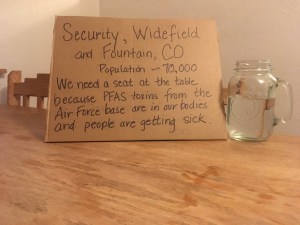 Security, Widefield
and Fountain, CO
Population - 70,000
We need a seat at the table
because PFAS toxins from the
Air Force base are in our bodies
and people are getting sick